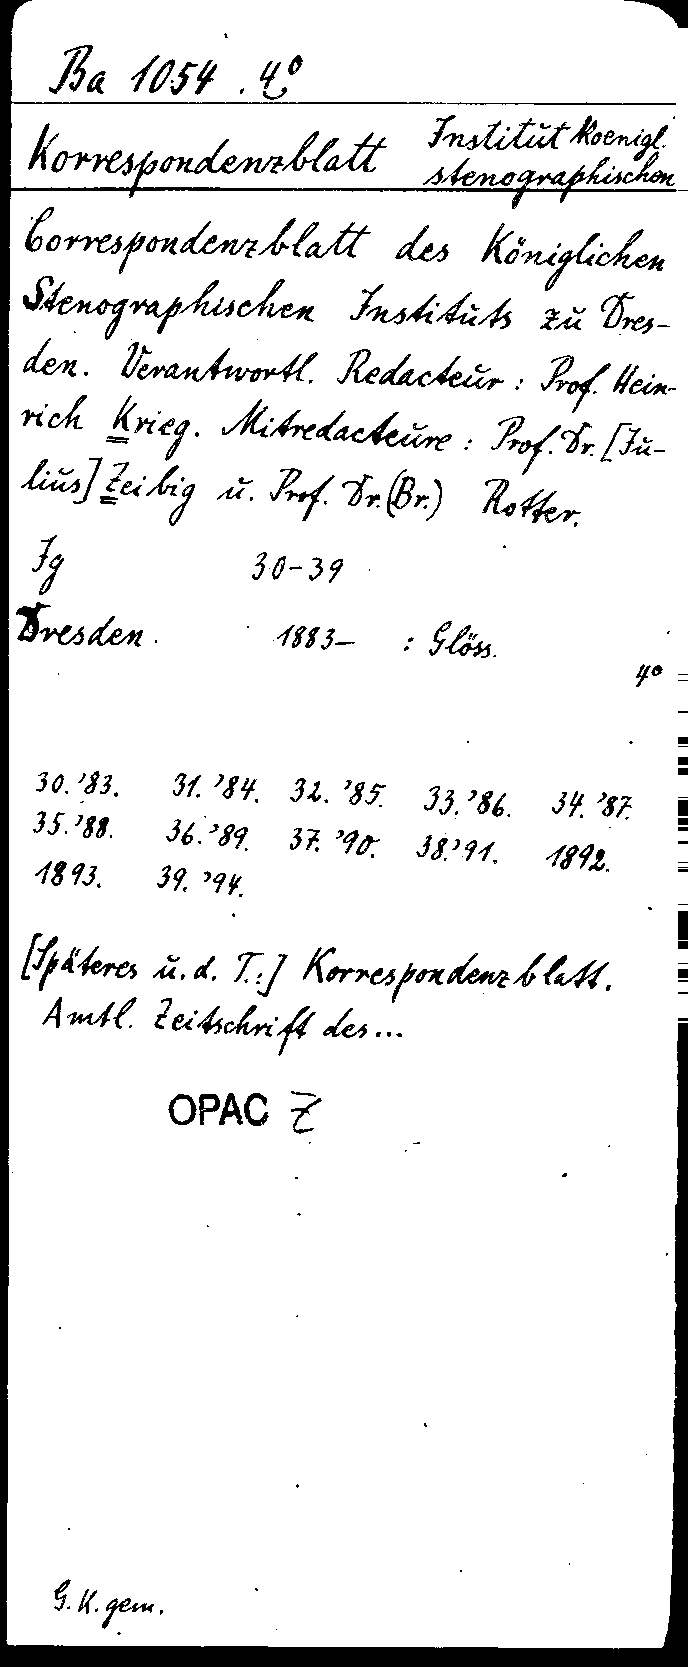 Ba 1054 . 4°
Korrespondenzblatt Institut koenigl.
stenographischen
Correspondenzblatt des Königlichen
Stenographischen Instituts zu Dres-
den. Verantwortl. Redacteur: Prof. Hein-
rich Krieg. Mitredacteure: Prof. Dr. [Ju-
lius] Zeibig u. Prof. Dr. (Br.) Rotter.
Jg 30-39
Dresden 1883- : Glöss.
4°
30. '83. 31. '84. 32. '85. 33. '86. 34. '87.
35. '88. 36. '89. 37. '90. 38. '91. 1892.
1893. 39. '94.
[Späteres u. d. T.:] Korrespondenzblatt.
Amtl. Zeitschrift des...
OPAC Z
G. K. gem.